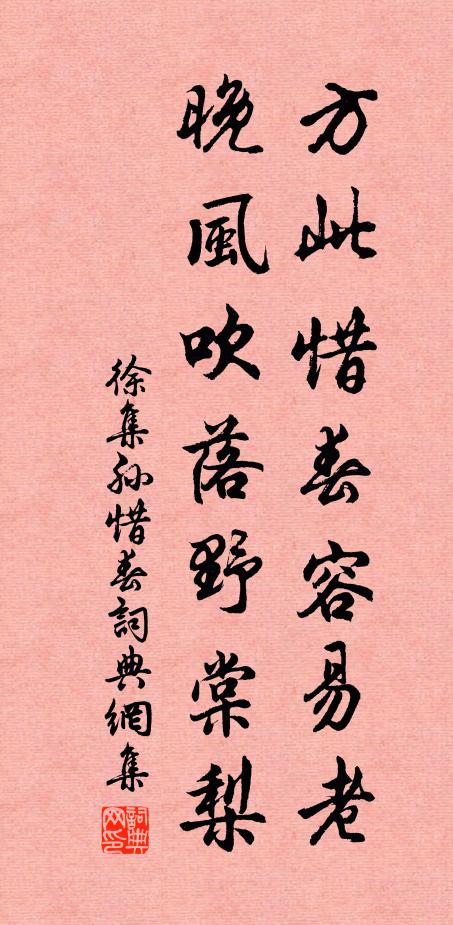 方此惜春容易老
晚風吹落野棠梨
徐集孙惜春詞典網集
詞典网印